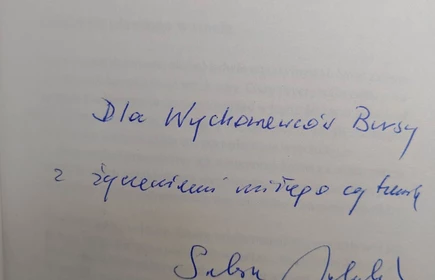 Dla Wychowanków Bursy
z życzeniami miłego czytania